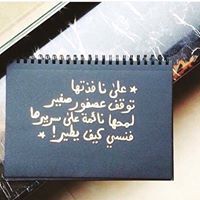 * على نافذتها
توقف عصفور صغير
لمحها نائمة على سريرها
فنسي كيف يطير! *